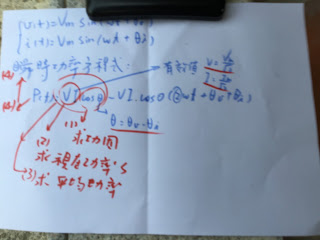 v(t)=Vm sin(wt+θv)
i(t)=Vm sin(wt+θi)
瞬時功率方程式.
有效值 V=Vm/√2
I=Im/√2
P(t)=VIcosθ-VIcosθ(2wt+θv+θi)
θ=θv-θi
(1)
求功因
(2)
求視在功率S
(3)求平均功率